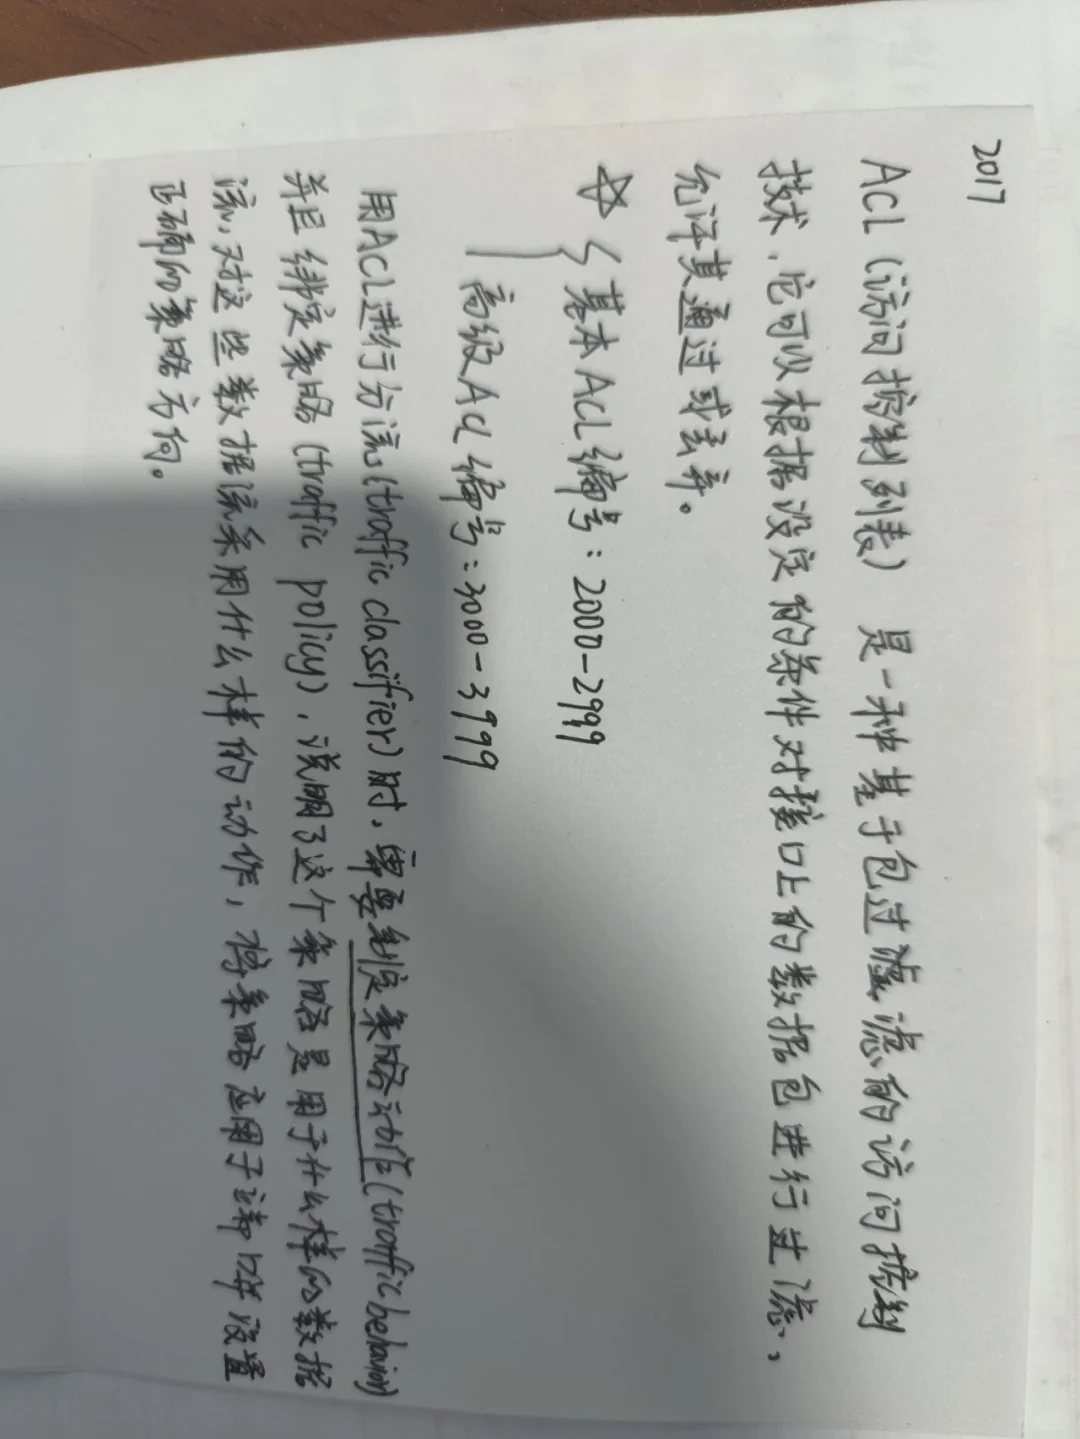 2017
ACL（访问控制列表）是一种基于包过滤的访问控制
技术，它可以根据设定的条件对接口上的数据包进行过滤，
允许其通过或丢弃。
☆ { 基本ACL编号：2000-2999
高级ACL编号：3000-3999
用ACL进行分流（traffic classifier）时，需要制定策略动作（traffic behavior）
并且绑定策略（traffic policy），说明了这个策略是用于什么样的数据
流，对这些数据流采用什么样的动作，将策略应用于端口并设置
正确的策略方向。